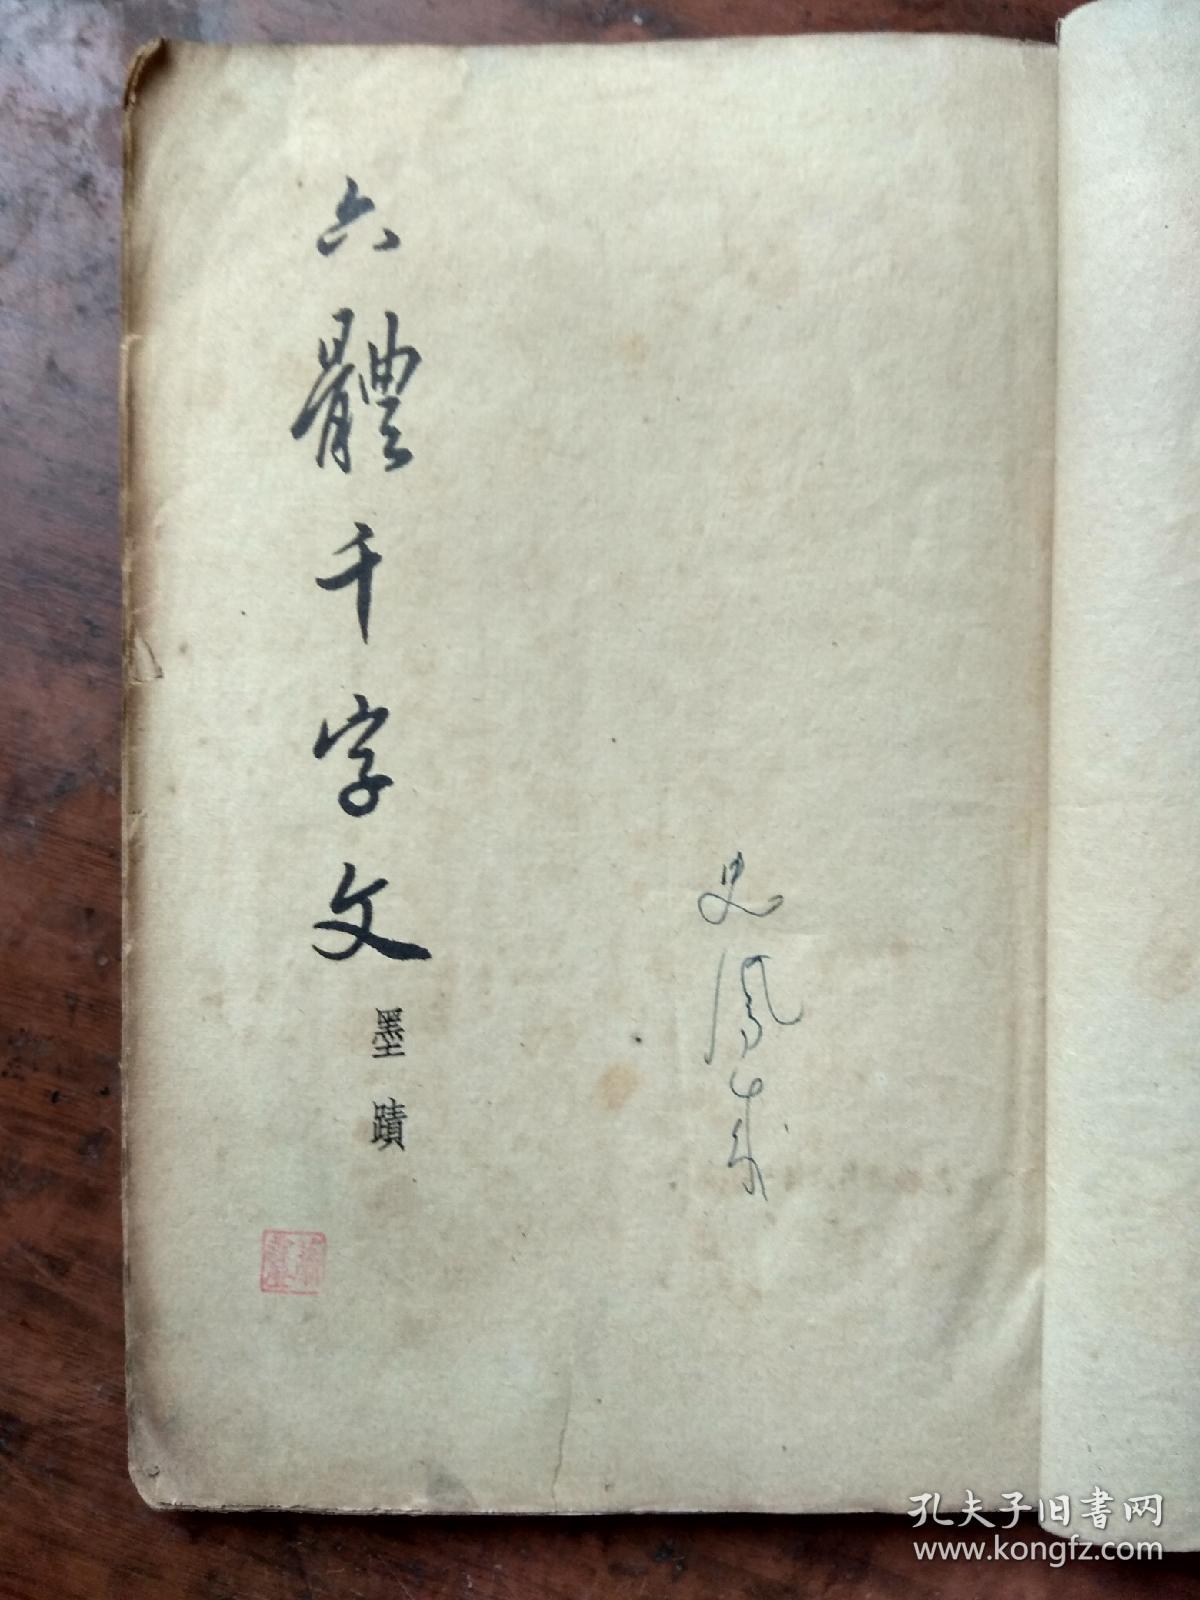 六體千字文
墨蹟
史鳳
孔夫子旧書网
www.kongfz.com